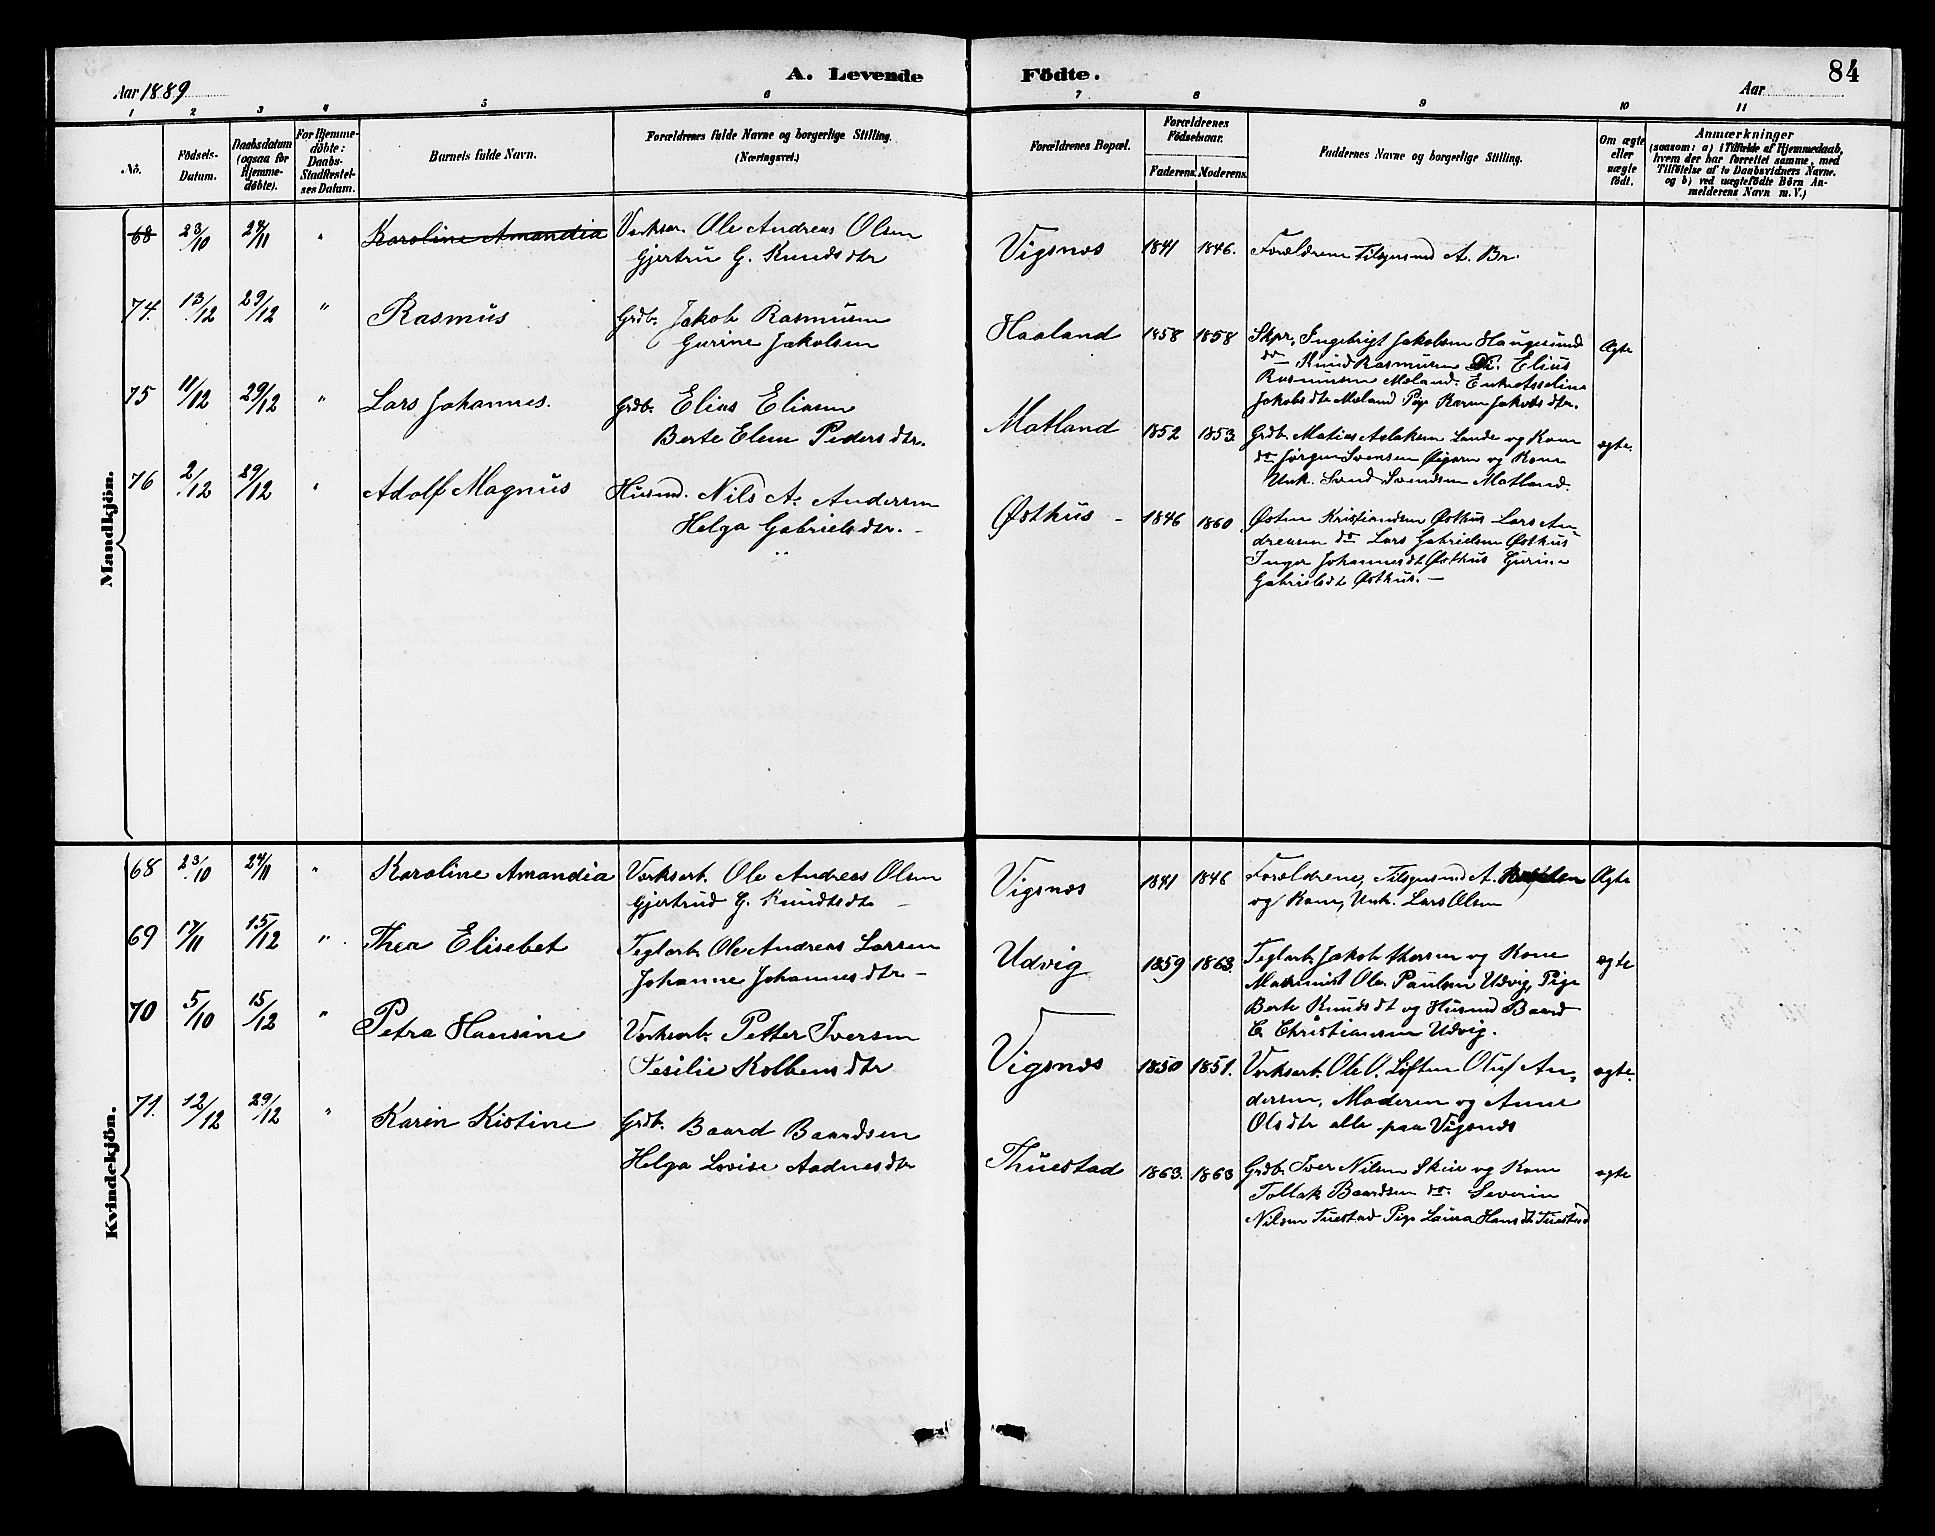 Aar 1889
A. Levende Födte.
84
Aar
1 2 3 4 5 6 7 8 9 10 11
No.
Födsels-Datum.
Daabsdatum (ogsaa for Hjemme-döbte).
For Hjemme-döbte: Daabs-Stadfæstel-ses Datum.
Barnets fulde Navn.
Forældrenes fulde Navne og borgerlige Stilling.
(Næringsvei.)
Forældrenes Bopæl.
Forældrenes Födselsaar.
Faderens. Moderens.
Faddernes Navne og borgerlige Stilling.
Om ægte eller uægte födt.
Anmærkninger
(saasom: a) i Tilfælde af Hjemmedaab, hvem der har forrettet samme, med Tilföielse af to Daabsvidners Navne. og b) ved uægtefödte Börn An-melderens Navn m. V.)
Mandkjön.
68 23/10 24/11 " Karoline Amandia Verksar. Ole Andreas Olsen Vigsnæs 1841 1846. Forældrene A. Br.
Gjertru G. Knudsdtr
74. 13/12 29/12 " Rasmus Grdb. Jakob Rasmusen Haaland 1858 1858 Skpr. Ingebrigt Jakobsen Haugesund Ægte
Gurine Jakobsen do Knud Rasmusen Elius
Rasmusen Mæland. Enke Asseline
Jakobsdtr Mæland Pige Karen Jakobsdtr.
75 11/12 29/12 " Lars Johannes. Grdb. Elias Eliasen Matland 1852 1853 Grdb. Matias Aslaksen Lande og Kone ægte.
Berte Elen Pedersdtr. do Jörgen Svensen og Kone
Unk. Svend Svendsen Matland.
76 2/12 29/12 " Adolf Magnus Husmd. Nils A. Andersen Østhus - 1846 1860 Østen Kristiansen Østhus Lars An-
Helga Gabrielsdtr. - dreasen do Lars Gabrielsen Østhus
Inger Johannesdt Østhus Gurine
Gabrielsdt Østhus. -
Kvindekjön.
68 23/10 24/11 " Karoline Amandia Verksarb. Ole Andreas Olsen Vigsnæs 1841 1846 Forældrene, A. Ægte
Gjertrud G. Knudtsdtr - og Kone, Unk. Lars Olsen
69 17/11 15/12 " Thea Elisebet Teglarb. Ole Andreas Larsen Udvig 1859 1863. Teglarb. Jakob Thorsen og Kone ægte
Johanne Johannesdtr - Maskinist Ole Paulsen Udvig, Pige
Berte Knudsdt og Husmd Baard
C Christiansen Udvig.
70 5/10 15/12 " Petra Hansine Verksarb. Petter Iversen Vigsnæs 1850 1851. Verksarb. Ole O. Løften Oluf An- ægte.
Sesilie Kolbensdtr dersen, Moderen og Anne
Olsdtr alle paa Vigsnæs
71. 12/12 29/12 " Karin Kistine Grdb. Baard Baardsen Thuestad 1863. 1863 Grdb. Iver Nilsen Skeie og Kone ægte
Helga Lovise Aadnesdtr Tollak Baardsen do. Severin
Nilsen Tuestad Pige Laura Hansdt Tuestad